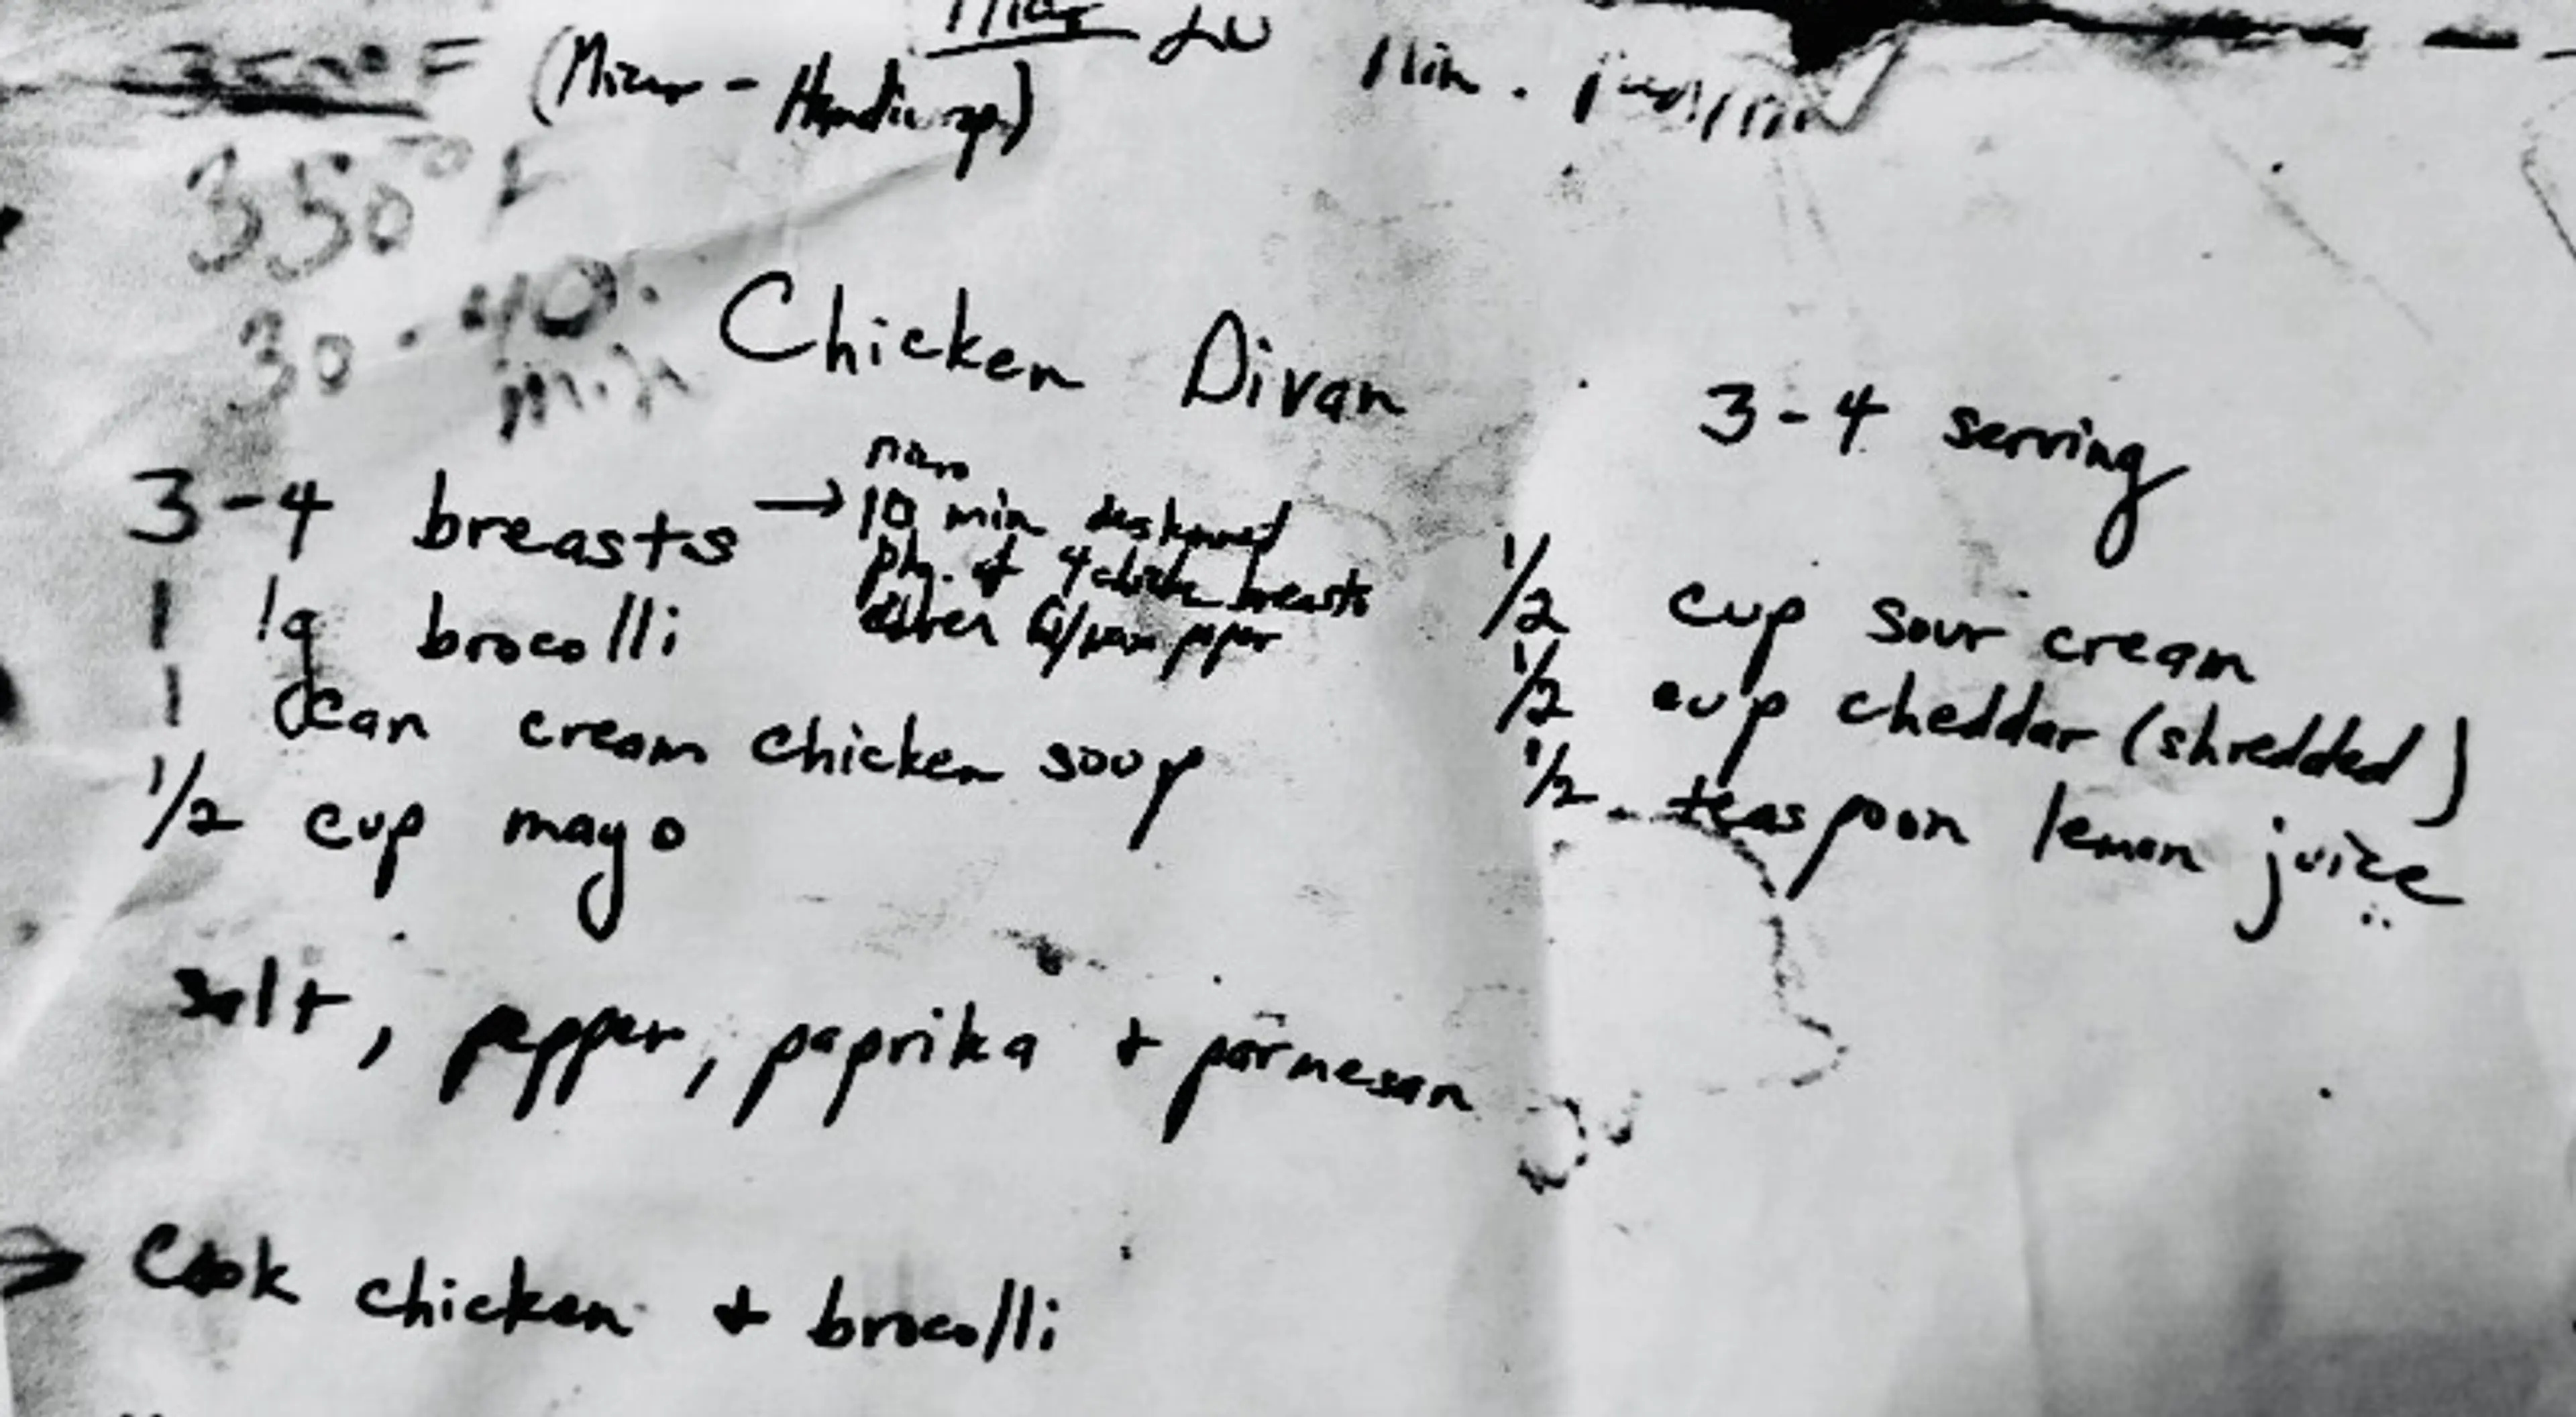 350° F (Micro - Handiwrap) 20 min.
350° F
30 - 40 min
Chicken Divan
3-4 serving
3-4 breasts → micro
10 min deskinned
pkg. of 4 chicken breasts
either G/wax paper
1 lg brocolli
1 can cream chicken soup
1/2 cup mayo
1/2 cup sour cream
1/2 cup cheddar (shredded)
1/2 teaspoon lemon juice
salt, pepper, paprika + parmesan
→ Cook chicken + brocolli